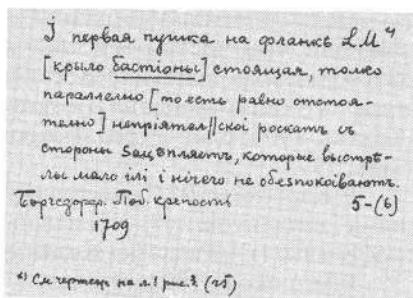 J первая пушка на фланкѣ LM ч)
[крыло бастіоны] стоящая, толко
параллелно [то есть равно отстоя-
телно] непріятел||скоі роскатъ съ
стороны Sацѣпляетъ, которые выстрѣ-
лы мало ілі і нічего не обеsпокоіваютъ.
Боргсдорф. Поб. крепость 5-(6)
1709
см. чертежъ на л. 1 рис. 3.